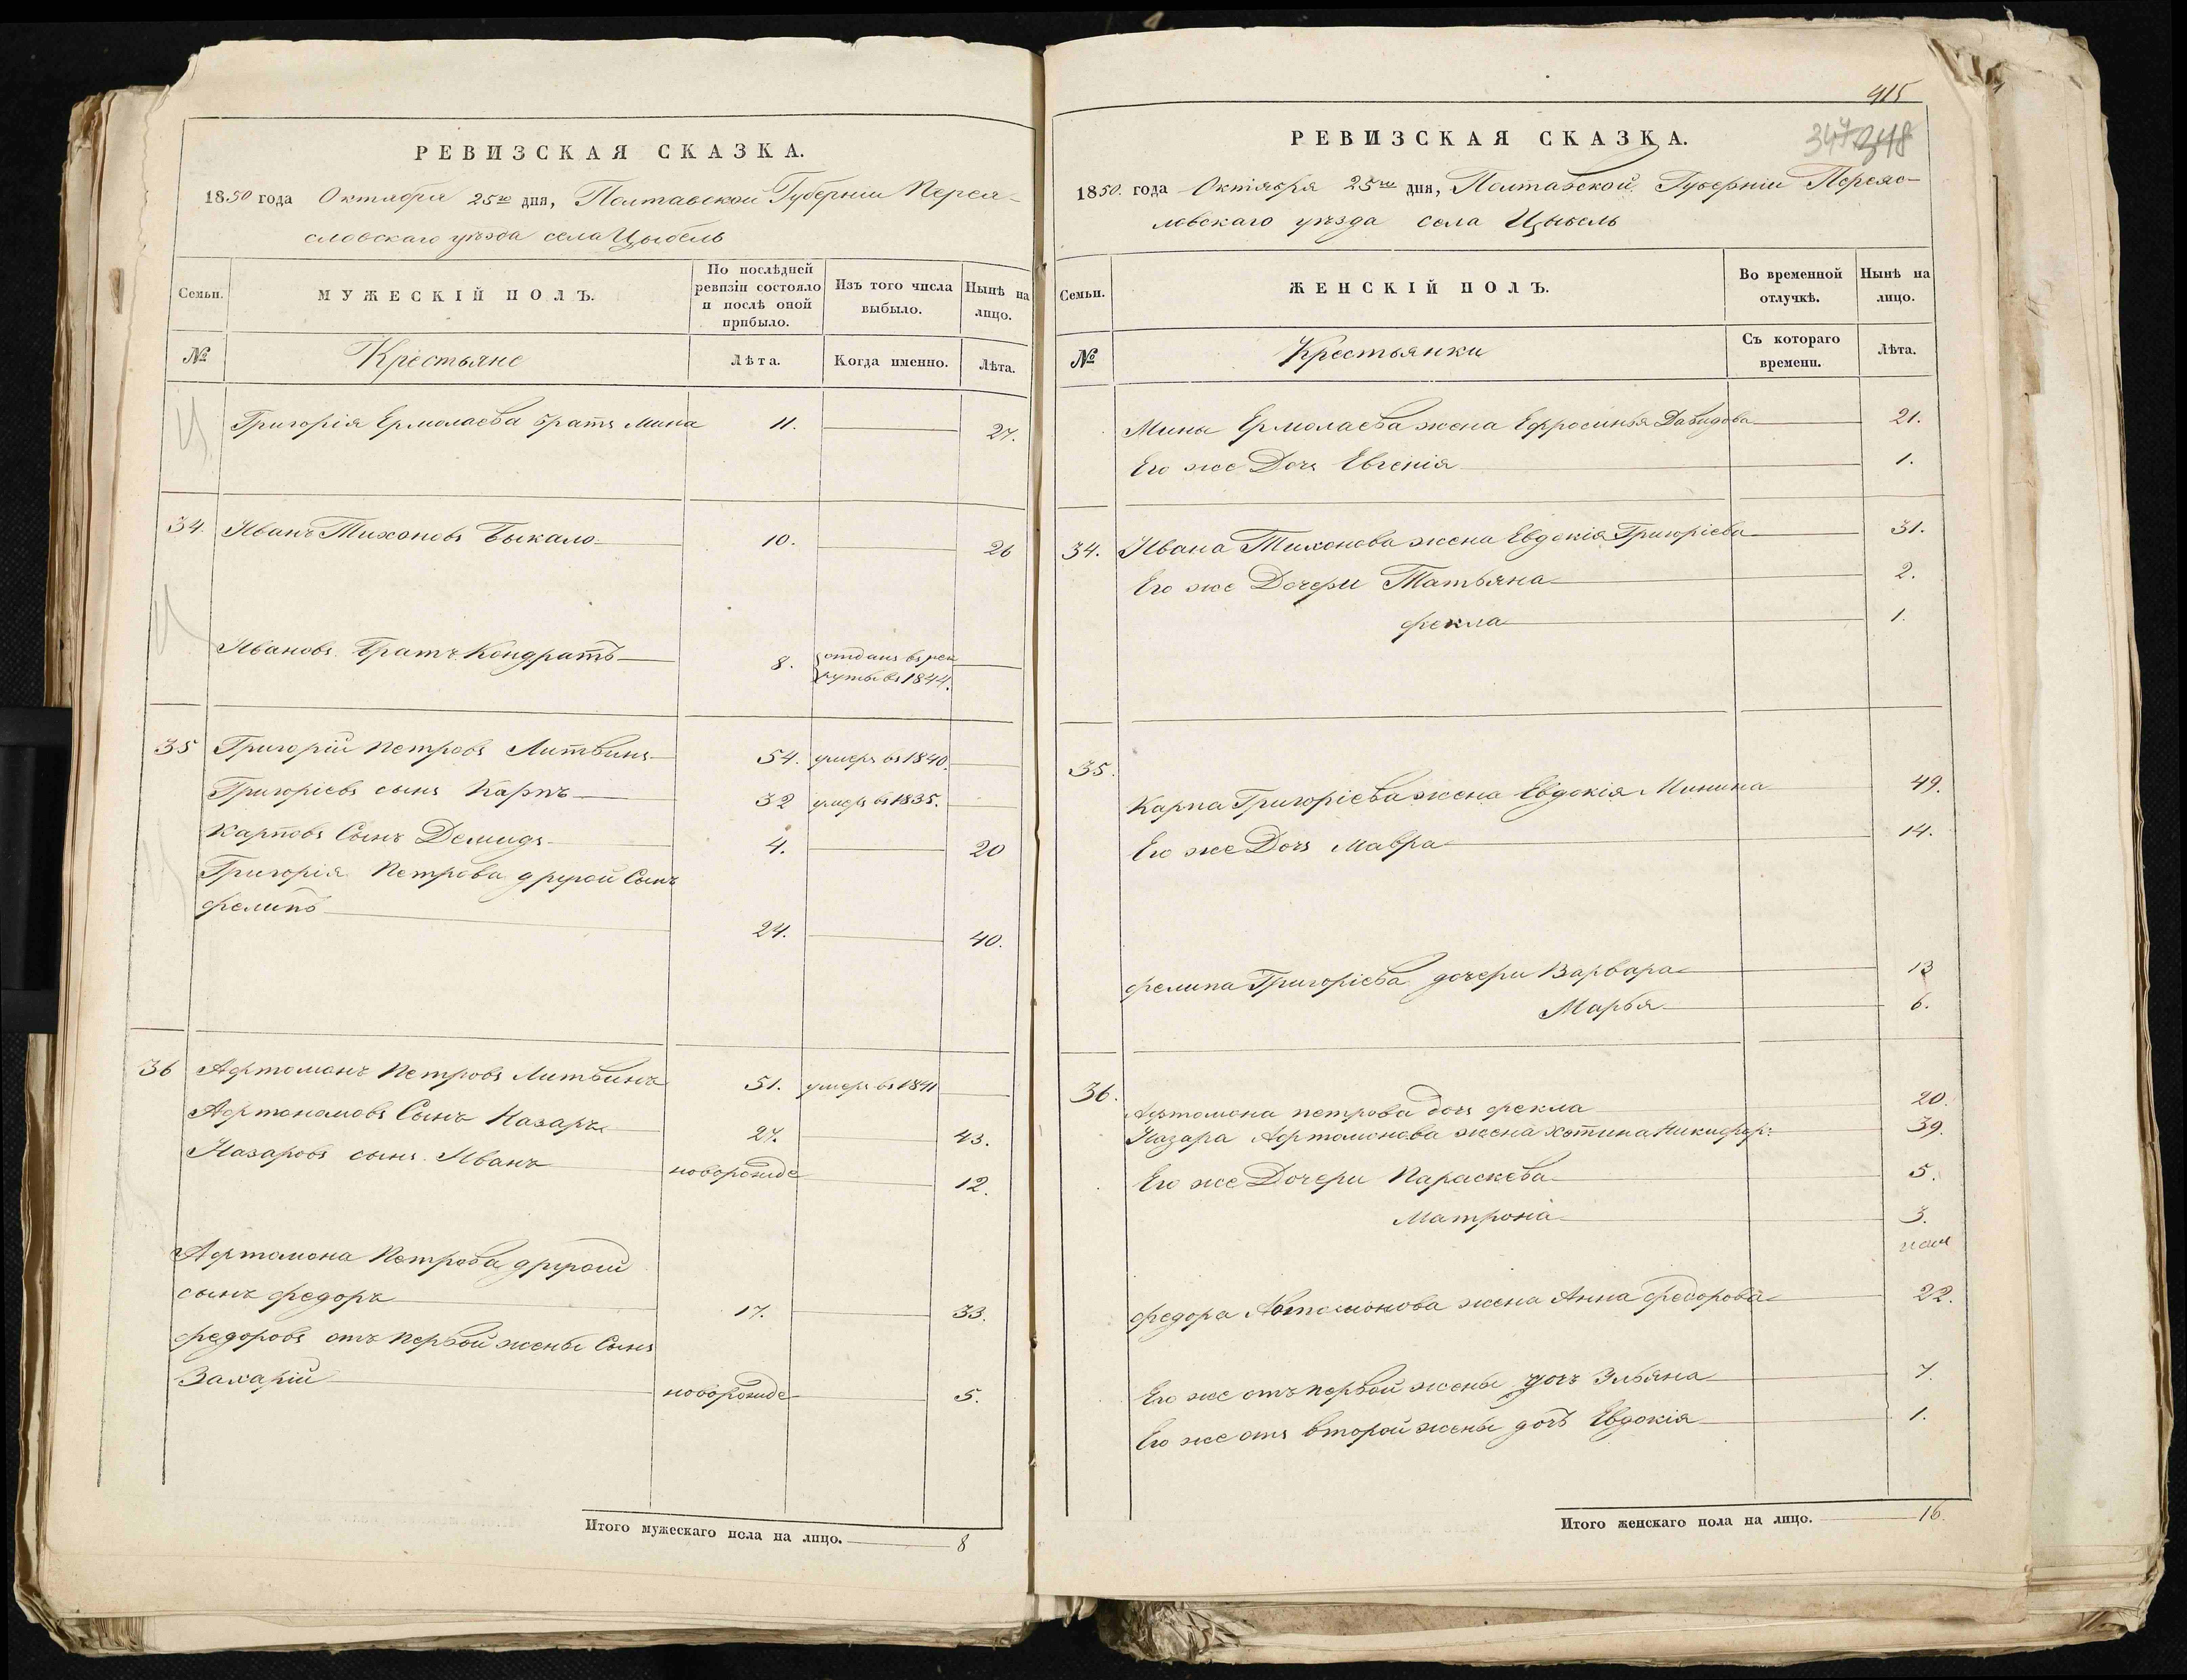 РЕВИЗСКАЯ СКАЗКА.
1850 года Октября 25го дня, Полтавской Губерніи Перея-
словскаго уѣзда села Цыбель
Семьи. МУЖЕСКІЙ ПОЛЪ. По послѣдней ревизіи состояло и послѣ оной прибыло. Изъ того числа выбыло. Нынѣ на лицо.
№ Крестьяне Лѣта. Когда именно. Лѣта.
Григорія Ермолаева братъ Мина 11. 27.
34. Иванъ Тихоновъ Быкало 10. 26
Ивановъ братъ Кондратъ 8. отданъ въ рек
руты въ 1844.
35 Григорій Петровъ Литвинъ 54. умеръ въ 1840.
Григоріевъ сынъ Карпъ 32 умеръ въ 1835.
Карповъ Сынъ Демидъ 4. 20
Григорія Петрова другой Сынъ
Филипъ 24. 40.
36 Афтомонъ Петровъ Литвинъ 51. умеръ въ 1841
Афтономовъ Сынъ Назаръ 27. 43.
Назаровъ сынъ Иванъ новорожде 12.
Афтомона Петрова другой
сынъ Федоръ 17. 33.
Федоровъ отъ первой жены Сынъ
Захарій новорожде 5.
Итого мужескаго пола на лицо. 8
415
РЕВИЗСКАЯ СКАЗКА. 347 348
1850. года Октября 25го дня, Полтавской Губерніи Переяс-
ловскаго уѣзда села Цыбель
Семьи. ЖЕНСКІЙ ПОЛЪ. Во временной отлучкѣ. Нынѣ на лицо.
№ Крестьянки Съ котораго времени. Лѣта.
Мины Ермолаева жена Ефросинья Давидова 21.
Его же Дочь Евгенія 1.
34. Ивана Тихонова жена Евдокія Григоріева 31.
Его же Дочери Татьяна 2.
Фекла 1.
35.
Карпа Григоріева жена Евдокія Минина 49.
Его же Дочь Мавра 14.
Филипа Григоріева дочери Варвара 13
Марья 6.
36.
Афтомона петрова дочь Фекла 20.
Назара Афтомонова жена Хотина Никифор: 39.
Его же Дочери Параскева 5.
Матрона 3.
Федора Автомонова жена Анна Федорова 22.
Его же отъ первой жены дочь Ульяна 7.
Его же отъ второй жены дочь Евдокія 1.
Итого женскаго пола на лицо. 16.